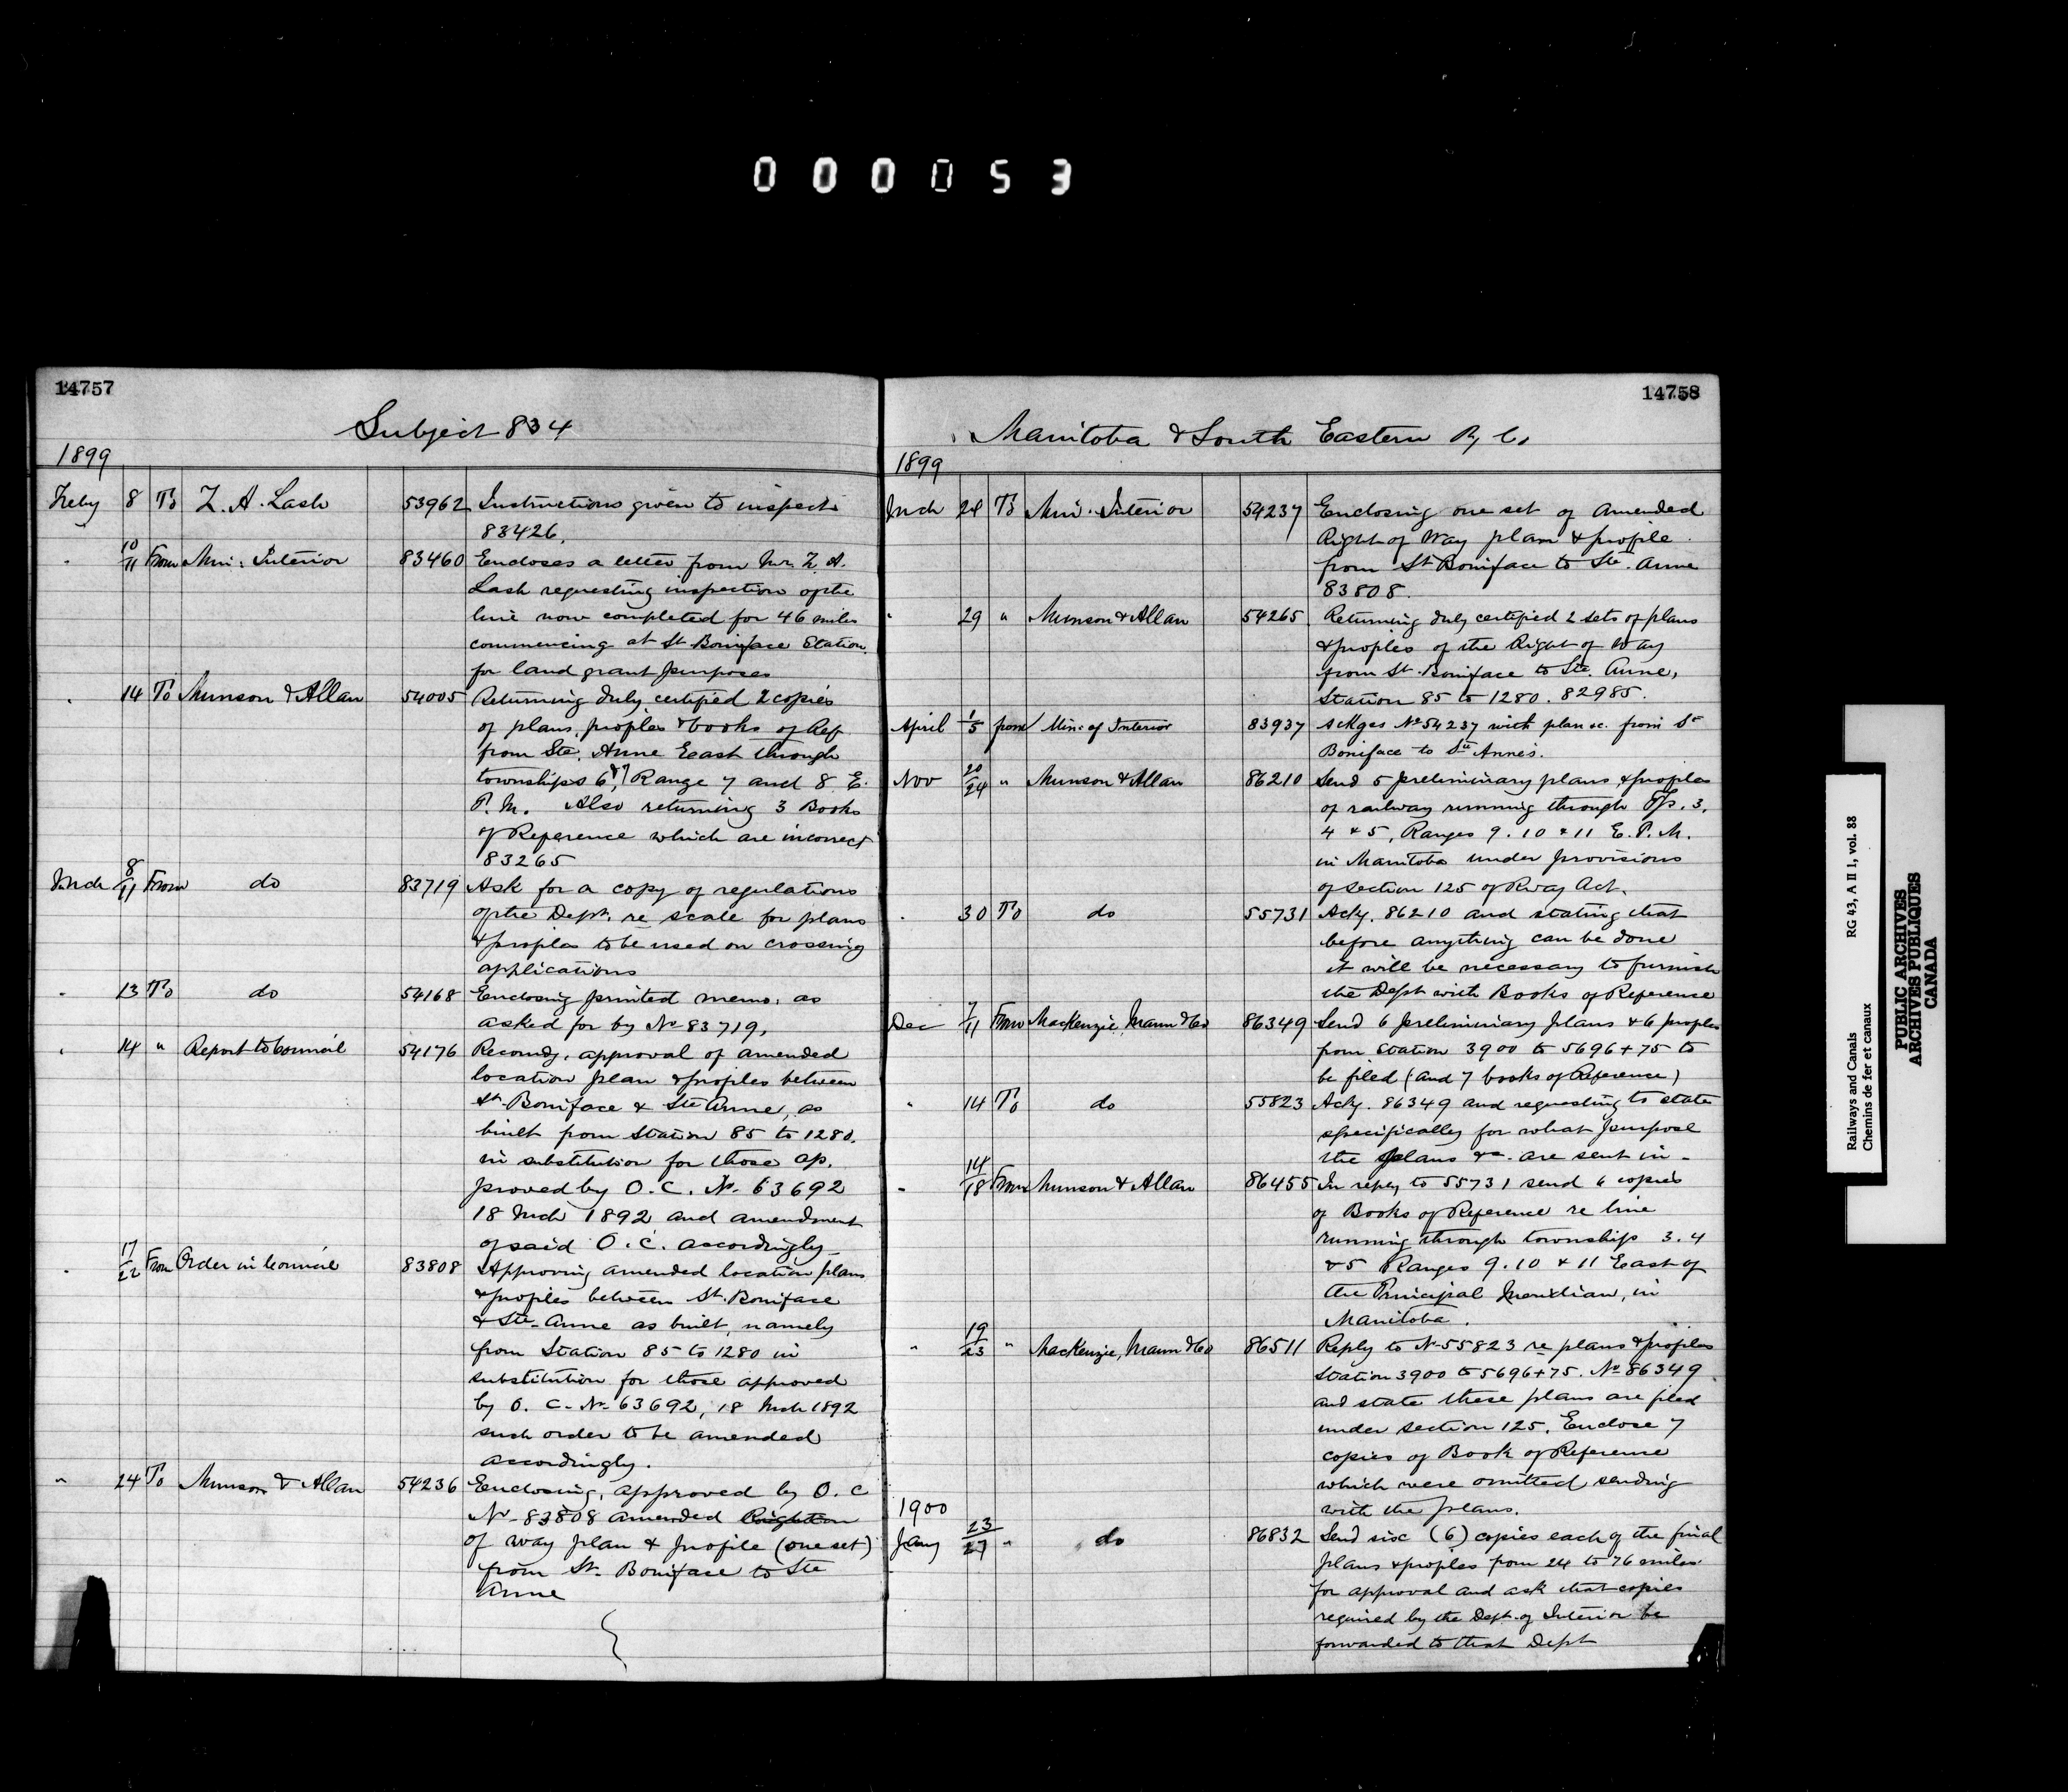 000053
14757
Subject 834
1899
Feby 8 To Z. A. Lash 53962 Instructions given to inspect
83426.
" 10/11 From Min: Interior 83460 Encloses a letter from Mr. Z. A.
Lash requesting inspection of the
line now completed for 46 miles
commencing at St Boniface Station
for land grant purposes
" 14 To Munson & Allan 54005 Returning duly certified 2 copies
of plans, profiles & books of Ref
from Ste. Anne East through
townships 6 & 7, Range 7 and 8 E.
P. M. Also returning 3 Books
of Reference which are incorrect
83265
Mch 8/11 From do 83719 Ask for a copy of regulations
of the Dept. re scale for plans
& profiles to be used on crossing
applications
" 13 To do 54168 Enclosing printed memo. as
asked for by No 83719.
" 14 " Report to Council 54176 Recomdg. approval of amended
location plan & profiles between
St. Boniface & Ste Anne, as
built from Station 85 to 1280.
in substitution for those ap.
proved by O. C. No. 63692
18 Mch 1892 and amendment
of said O. C. accordingly
" 17/22 From Order in Council 83808 Approving amended location plans
& profiles between St. Boniface
& Ste. Anne as built, namely
from Station 85 to 1280 in
substitution for those approved
by O. C. No. 63692, 18 Mch 1892
such order to be amended
accordingly.
" 24 To Munson & Allan 54236 Enclosing, approved by O. C
No. 83808 amended Right
of way plan & profile (one set)
from St. Boniface to Ste
Anne
14758
Manitoba & South Eastern Ry Co.
1899
Mch 24 To Min. Interior 54237 Enclosing one set of amended
Right of Way plan & profile
from St Boniface to Ste. Anne
83808.
" 29 " Munson & Allan 54265 Returning duly certified 2 sets of plans
& profiles of the Right of Way
from St. Boniface to Ste. Anne,
Station 85 to 1280. 82985.
April 1/5 from Min: of Interior 83937 Ackges No 54237 with plan &c. from St
Boniface to Ste Anne's.
Nov 20/24 " Munson & Allan 86210 Send 5 preliminary plans & profiles
of railway running through Tps. 3,
4 & 5, Ranges 9. 10 & 11 E. P. M.
in Manitoba under provisions
of section 125 of Rway Act.
" 30 To do 55731 Ackg. 86210 and stating that
before anything can be done
it will be necessary to furnish
the Dept with Books of Reference
Dec 7/11 From MacKenzie, Mann & Co 86349 Send 6 preliminary plans & 6 profiles
from Station 3900 to 5696+75 to
be filed (and 7 books of Reference)
" 14 To do 55823 Ackg. 86349 and requesting to state
specifically for what purpose
the plans &c. are sent in.
" 14/18 From Munson & Allan 86455 In reply to 55731 send 6 copies
of Books of Reference re line
running through townships 3. 4
& 5 Ranges 9. 10 & 11 East of
the Principal Meridian, in
Manitoba.
" 19/23 " MacKenzie, Mann & Co 86511 Reply to No 55823 re plans & profiles
Station 3900 to 5696+75. No 86349
and state these plans are filed
under section 125. Enclose 7
copies of Book of Reference
which were omitted sending
with the plans.
1900
Jany 23/27 " do 86832 Send six (6) copies each of the final
plans & profiles from 24 to 76 miles
for approval and ask that copies
required by the Dept. of Interior be
forwarded to that Dept
Railways and Canals RG 43, A II 1, vol. 88
Chemins de fer et canaux
PUBLIC ARCHIVES
ARCHIVES PUBLIQUES
CANADA